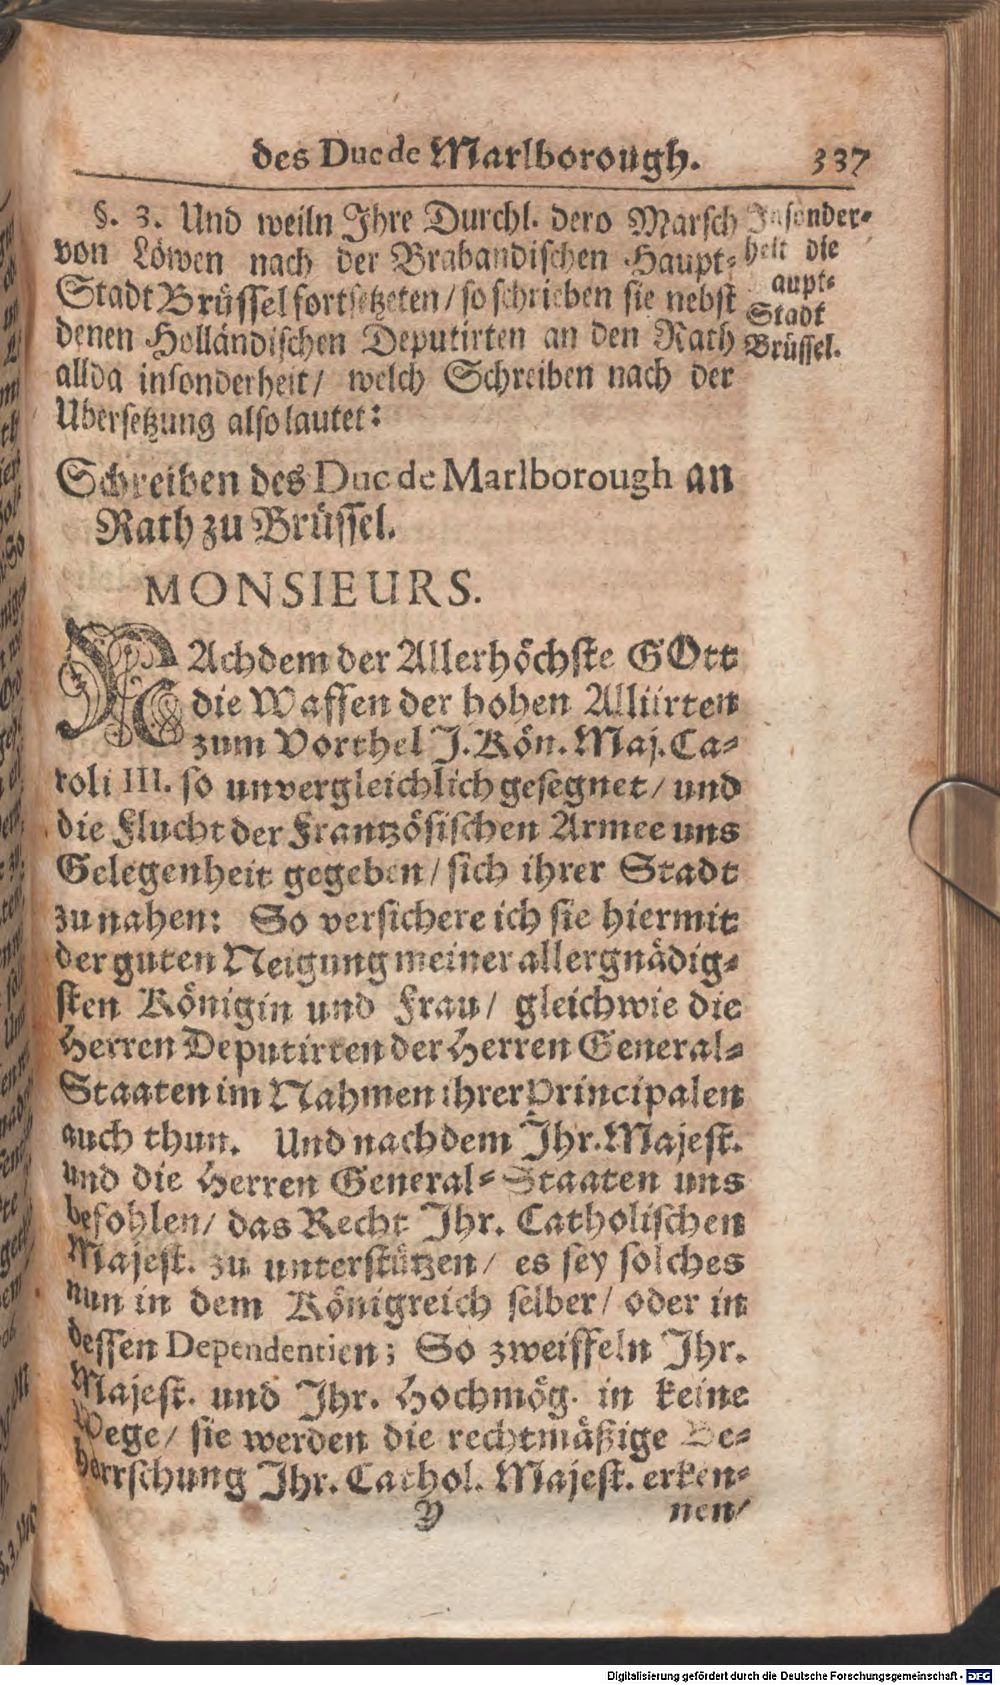 des Duc de Marlborough. 337
§. 3. Und weiln Ihre Durchl. dero Marsch
von Löwen nach der Brabandischen Haupt-
Stadt Brüssel fortsetzeten / so schrieben sie nebst
denen Holländischen Deputirten an den Rath
allda insonderheit / welch Schreiben nach der
Ubersetzung also lautet:
Insonder-
heit die
aupt-
Stadt
Brüssel.
Schreiben des Duc de Marlborough an
Rath zu Brüssel.
MONSIEURS.
NAchdem der Allerhöchste GOtt
die Waffen der hohen Alliirten
zum Vortheil J. Kön. Maj. Ca-
roli III. so unvergleichlich gesegnet / und
die Flucht der Frantzösischen Armee uns
Gelegenheit gegeben / sich ihrer Stadt
zu nahen: So versichere ich sie hiermit
der guten Neigung meiner allergnädig-
sten Königin und Frau / gleichwie die
Herren Deputirten der Herren General-
Staaten im Nahmen ihrer Principalen
auch thun. Und nachdem Ihr. Majest.
und die Herren General-Staaten uns
befohlen / das Recht Ihr. Catholischen
Majest. zu unterstützen / es sey solches
nun in dem Königreich selber / oder in
dessen Dependentien; So zweiffeln Ihr.
Majest. und Ihr. Hochmög. in keine
Wege / sie werden die rechtmäßige Be-
herrschung Ihr. Cathol. Majest. erken-
Y nen /
Digitalisierung gefördert durch die Deutsche Forschungsgemeinschaft - DFG